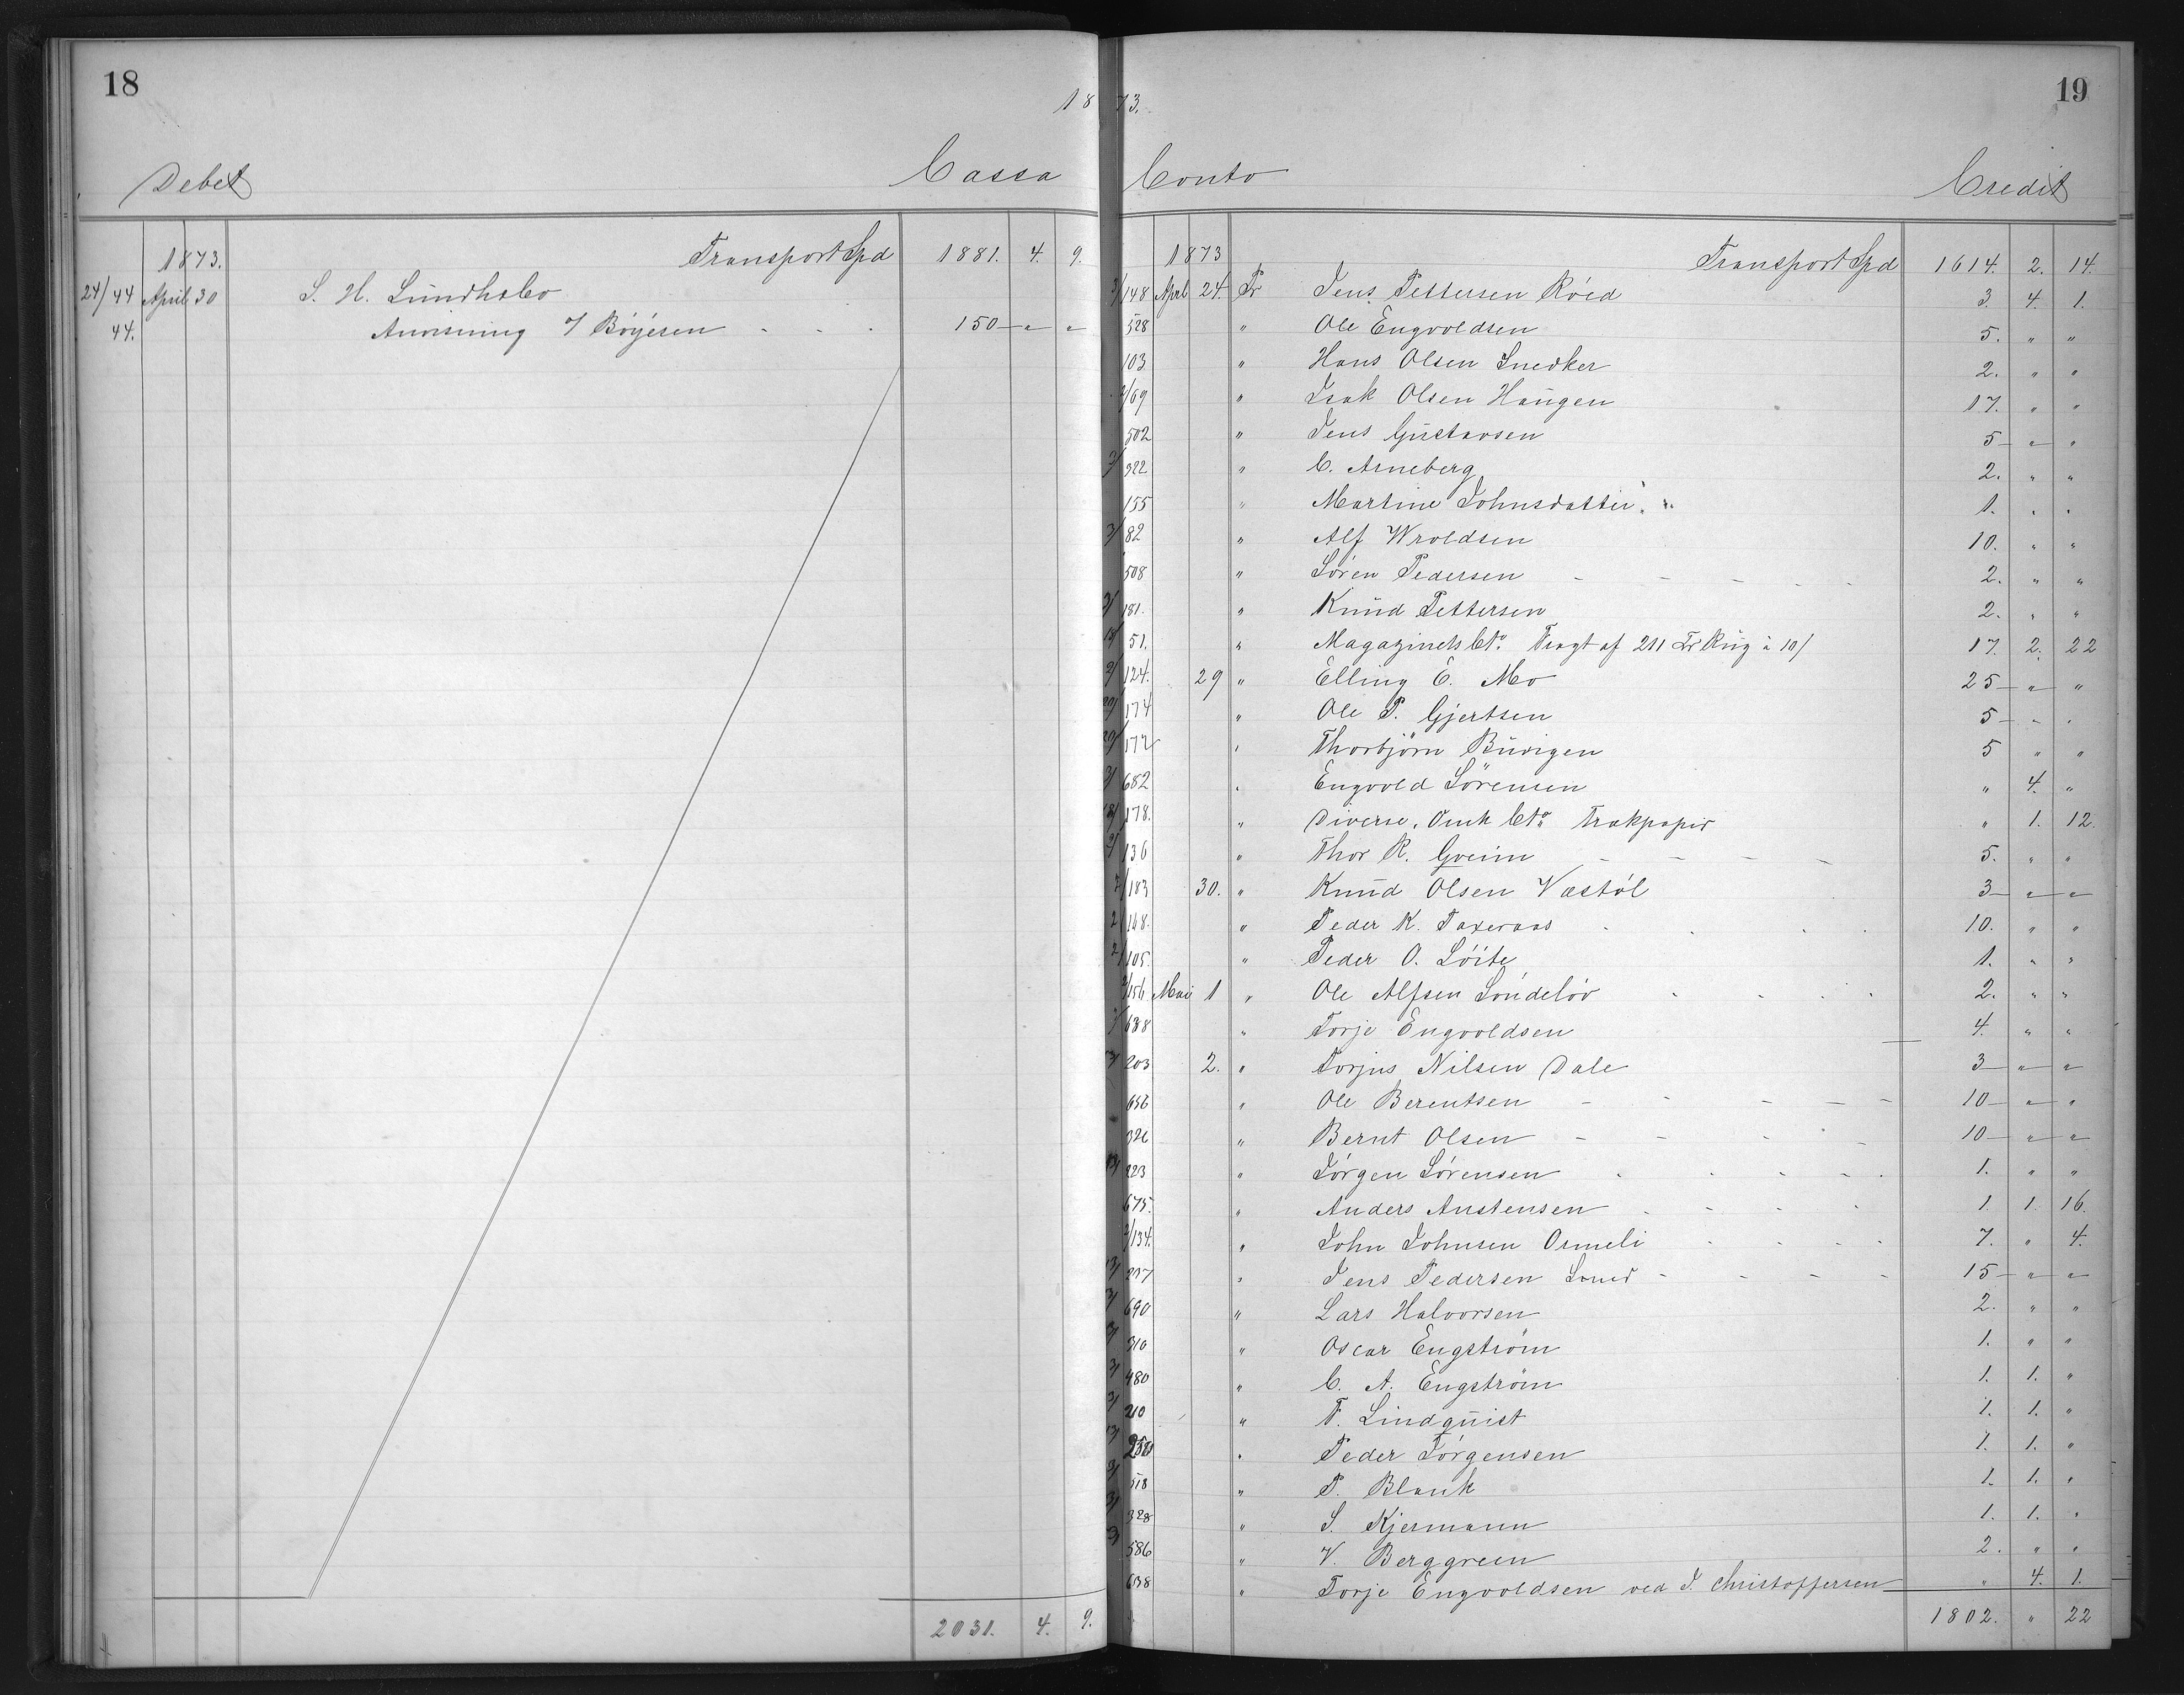 18
1873.
Debet Cassa
1873. Transport Spd 1881. 4. 9.
24/44 April 30 S. H. Lundhsbo
44. Anvisning / Böyesen - - - 150 - " - "
2031. 4. 9.
19
Conto Credit
1873 Transport Spd 1614. 2. 14.
3/148 April 24. Pr Jens Pettersen Röed 3. 4. 1.
528 " Ole Engvoldsen 5. " "
103 " Hans Olsen Snedker 2. " "
2/69 " Isak Olsen Haugen 17. " "
502 " Jens Gustavsen 5 - " - "
3/322 " C. Arneberg 2. " "
155 " Martine Johnsdatter 1. " "
3/82 " Alf Wroldsen 10. " "
508 " Sören Pedersen - - - - - 2. " "
3/181. " Knud Pettersen 2. " "
51. " Magazinets Cto. Fragt af 211 Tr Rug à 10/ 17. 2. 22
2/124. 29 " Elling E. Mo 25 - " - "
174 " Ole P. Gjertsen 5 - " "
172 " Thorbjörn Buvigen 5 " "
3/682 " Engvold Sörensen " 4. "
178. " Diverse Omk Cto. Trakpapir " 1. 12.
3/136 " Thor R. Gveim - - - - 5. " "
2/183 30. " Knud Olsen Vestöl 3 - " - "
2/168. " Peder K. Taxeraas - - - - 10. " "
2/105. " Peder O. Löite 1. " "
2/156 Mai 1 " Ole Alfsen Söndelöv - - - - 2. " "
638 " Torje Engvoldsen 4. " "
3/203 2. " Torjus Nilsen Dale 3 - " - "
656 " Ole Berentsen - - - - - 10 - " - "
326 " Bernt Olsen - - - - 10 - " - "
223 " Jörgen Sörensen - - - - - 1. " "
675. " Anders Austensen - - - - 1. 1. 16.
2/134. " John Johnsen Ormeli - - - - 7. " 4.
3/207 " Jens Pedersen Lund - - - - 15 - " - "
3/690 " Lars Halvorsen 2. " "
3/310 " Oscar Engström 1. " "
3/480 " C. A. Engström 1. 1. "
3/210 " F. Lindquist 1. 1. "
" Peder Jörgensen 1. 1. "
3/518 " P. Blank 1. 1. "
3/328 " S. Kjermann 1. 1. "
3/586 " V. Berggreen 2. " "
638 " Torje Engvoldsen ved J. Christoffersen " 4. 1.
1802. " 22